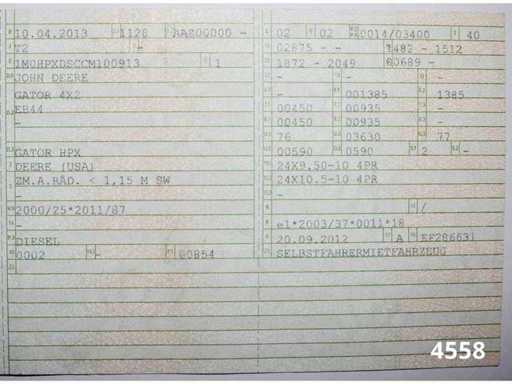 10.04.2013 1128 AAZ00000 -
T2 -
1M0HPXDSCCM100913 1
JOHN DEERE
GATOR 4X2
EB44
-
GATOR HPX
DEERE (USA)
ZM.A.RÄD. < 1,15 M SW
-
2000/25*2011/87
-
DIESEL
0002 - 00854
02 02 0014/03400 40
02875 - - 1482 - 1512
1872 - 2049 00689 -
- - -
- 001385 1385
00450 00935 -
00450 00935 -
76 03630 77
00590 0590 2 -
24X9.50-10 4PR
24X10.5-10 4PR
-
- /
e1*2003/37*0011*18
20.09.2012 A EF286631
SELBSTFAHRERMIETFAHRZEUG
4558